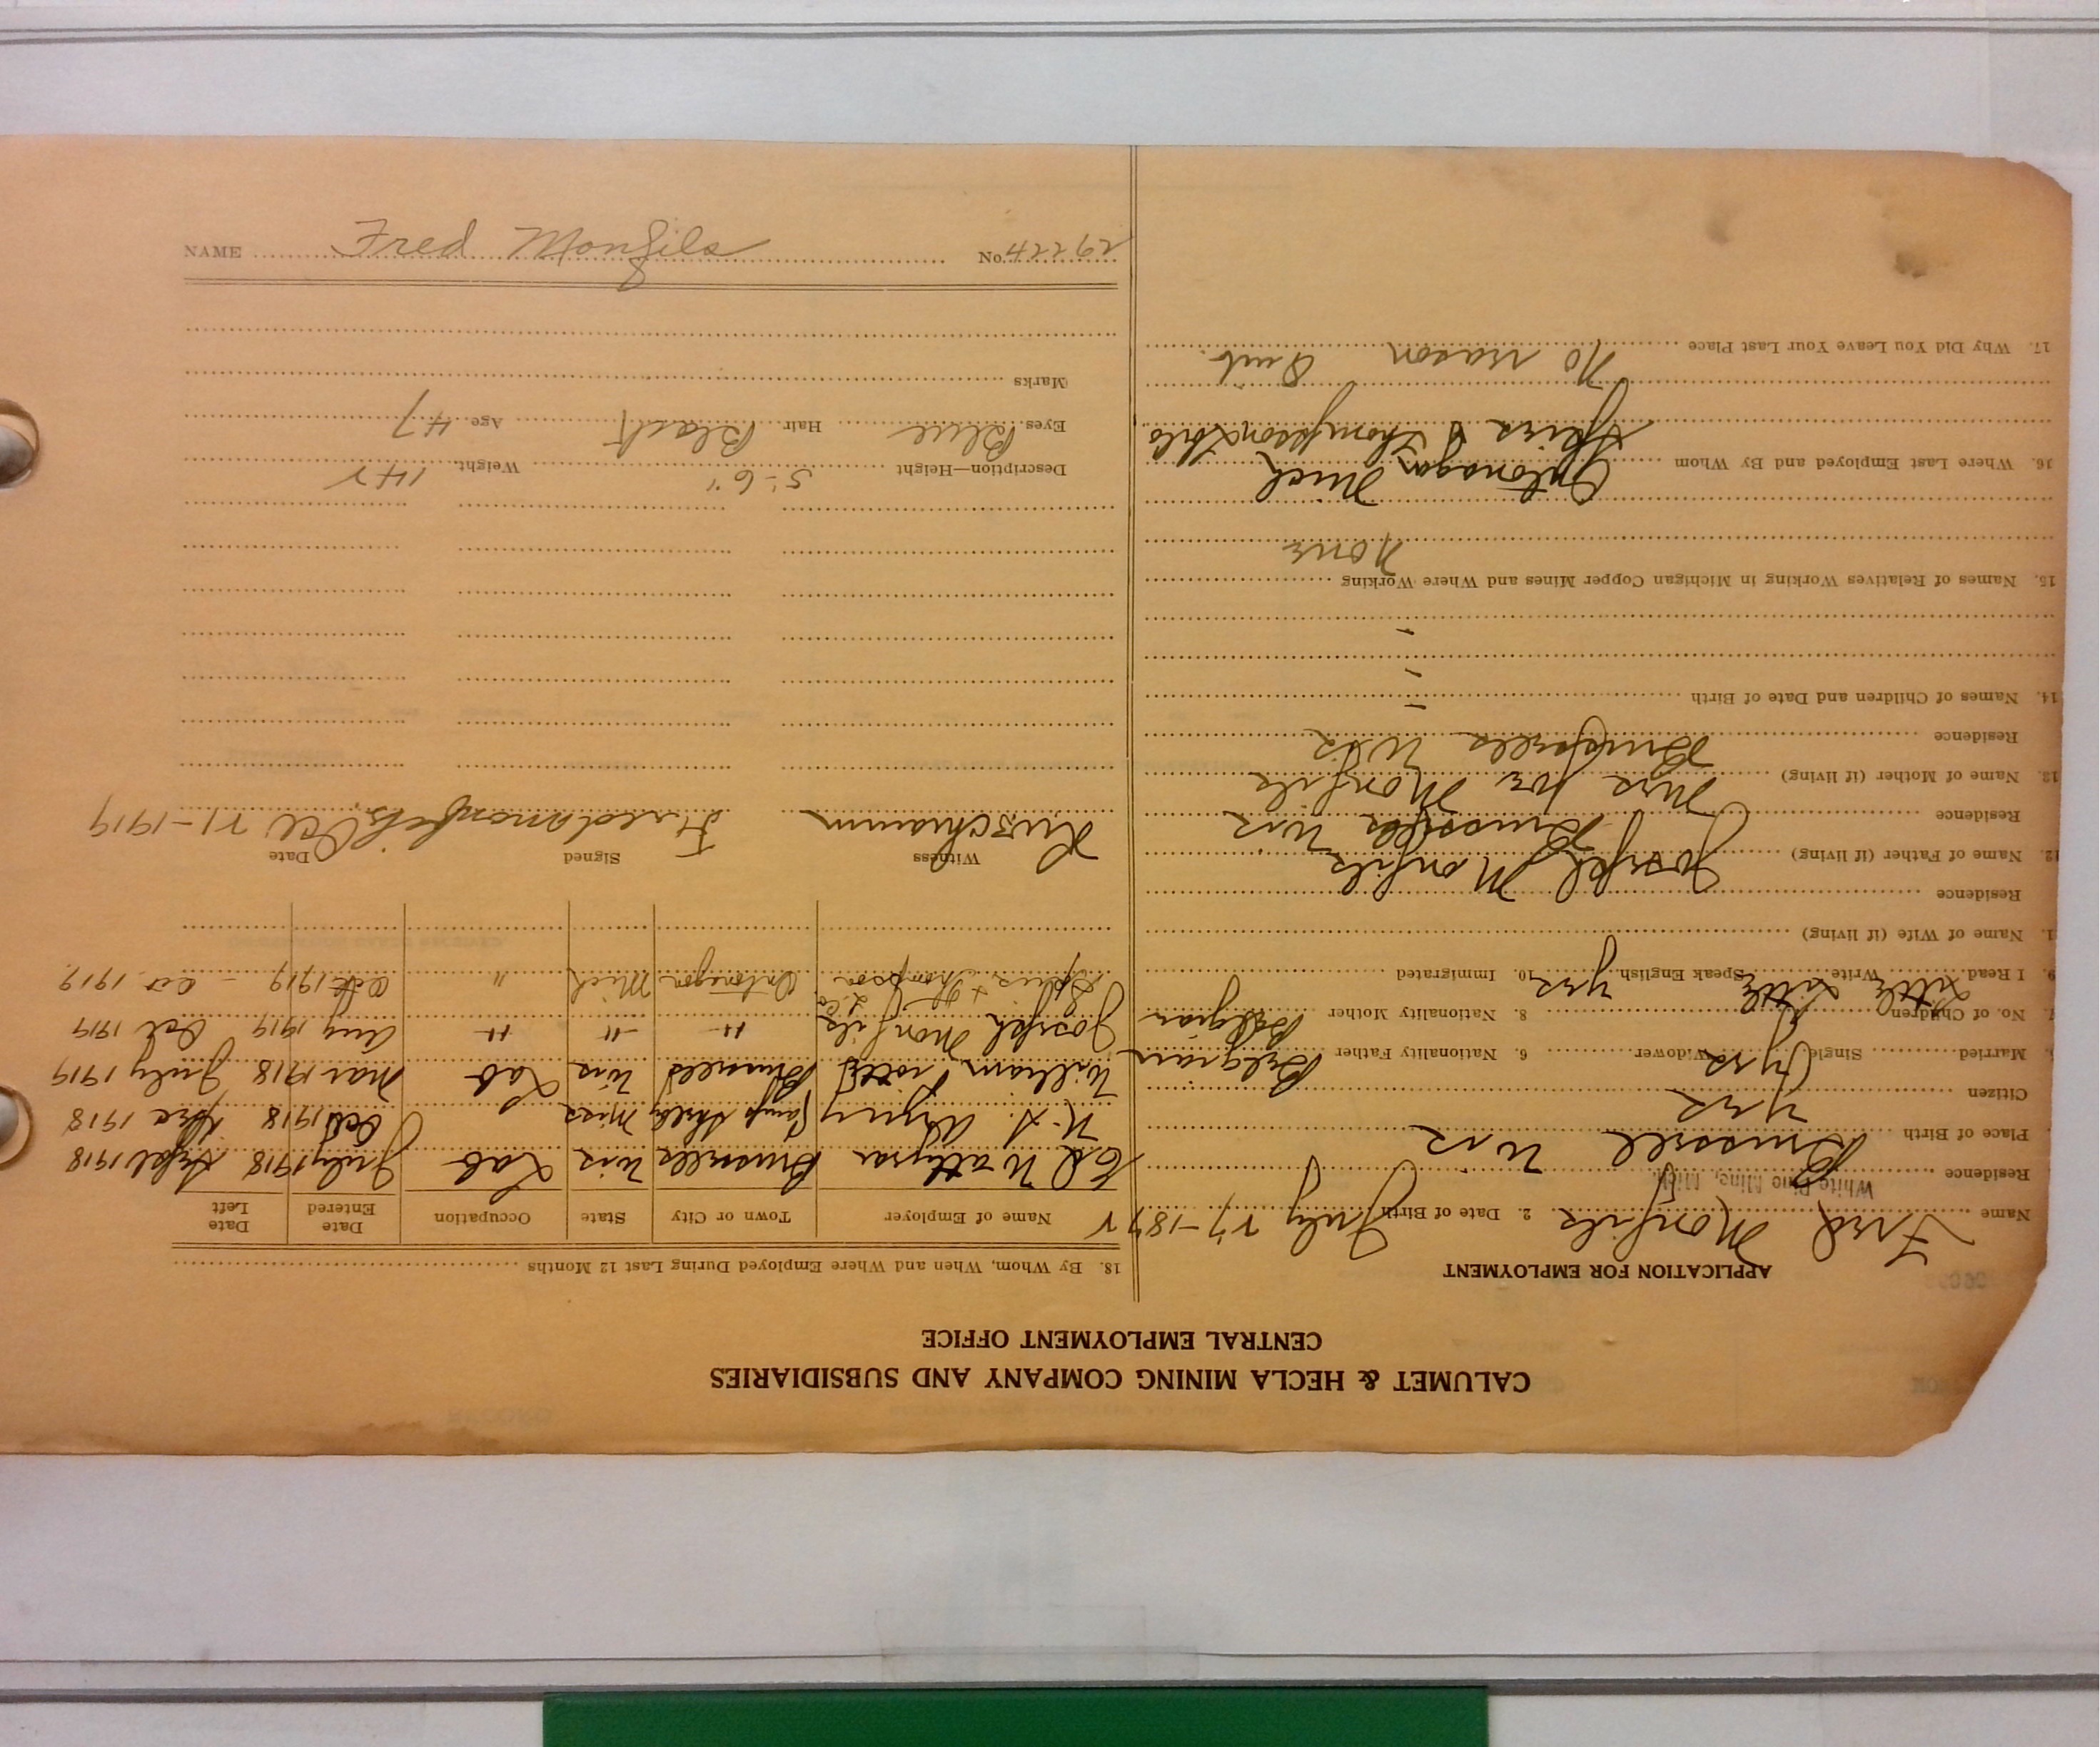 CALUMET & HECLA MINING COMPANY AND SUBSIDIARIES
CENTRAL EMPLOYMENT OFFICE
APPLICATION FOR EMPLOYMENT
Name Fred Monfils 2. Date of Birth July 27-1872
White Pine Mine, Mich.
Residence
Place of Birth Brussel Wis
Citizen yes
Married Single yes Widower 6. Nationality Father Belgian
7. No. of Children 8. Nationality Mother Belgian
9. I Read Little Write Little Speak English yes 10. Immigrated
1. Name of Wife (if living)
Residence
12. Name of Father (if living) Joseph Monfils
Residence Brussels Wis
13. Name of Mother (if living) Mrs Monfils
Residence Brussels Wis
14. Names of Children and Date of Birth -
-
-
15. Names of Relatives Working in Michigan Copper Mines and Where Working
None
16. Where Last Employed and By Whom Ontonagon Mich
Spies & Thompson
17. Why Did You Leave Your Last Place No reason Quit.
18. By Whom, When and Where Employed During Last 12 Months
Name of Employer Town or City State Occupation Date Entered Date Left
Brussels Wis Lab July 1918 1918
U.S. Army Camp Miss Oct 1918 1918
William Brussels Wis Lab Mar 1918 July 1919
Joseph Monfils -"- -"- -"- Aug 1919 Oct 1919
Spies & Thompson L. Co Ontonagon Mich " Oct 1919 - Oct 1919
Witness Signed Date
Fred monfils. Oct 21-1919
Description—Height 5'-6" Weight 142
Eyes Blue Hair Black Age 47
Marks
NAME Fred Monfils No. 42292